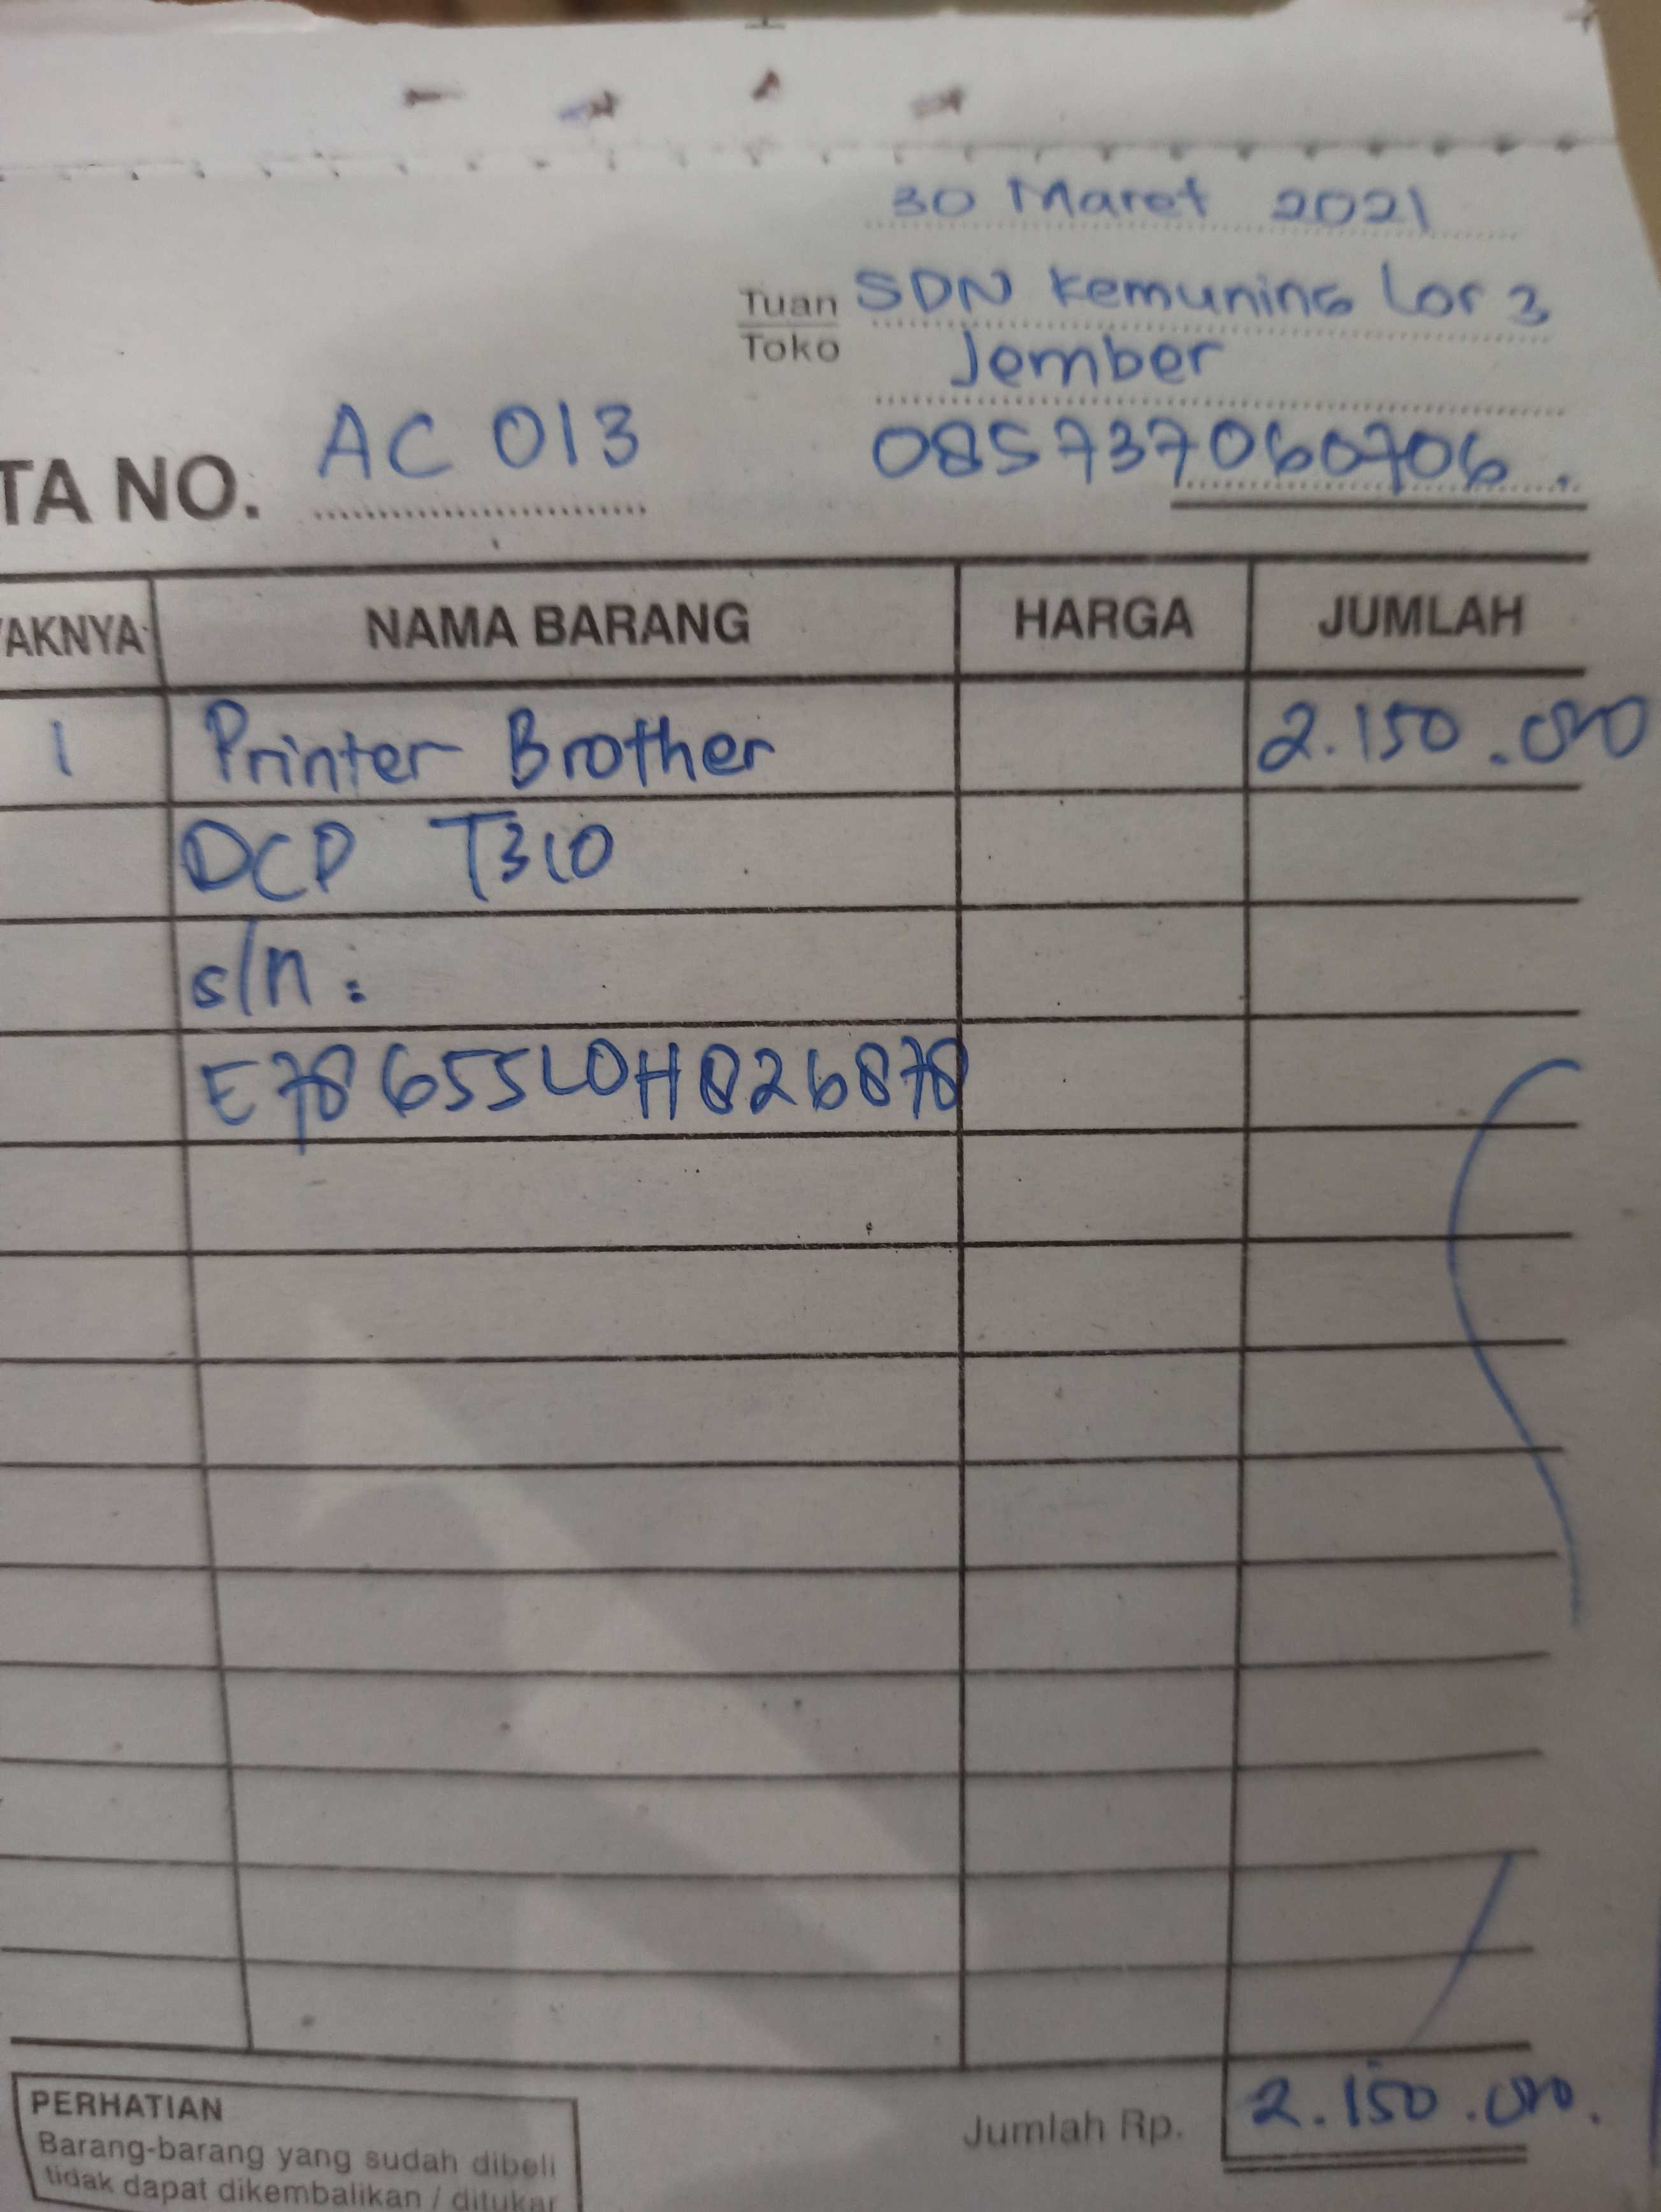 30 Maret 2021
Tuan SDN Kemuning Lor 3
Toko Jember
085737060706.
TA NO. AC 013
YAKNYA NAMA BARANG HARGA JUMLAH
1 Printer Brother 2.150.000
DCP T310
s/n :
E78655L0H826878
Jumlah Rp. 2.150.000.
PERHATIAN
Barang-barang yang sudah dibeli
tidak dapat dikembalikan / ditukar